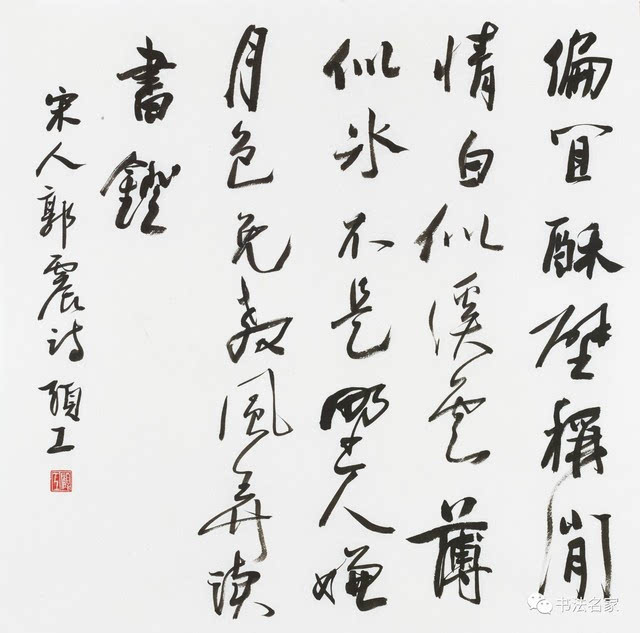 偏宜酥壁稱閒
情白似溪雲薄
似冰不是野人嫌
月色免教風弄讀
書鐙
宋人郭震詩 顧工
书法名家